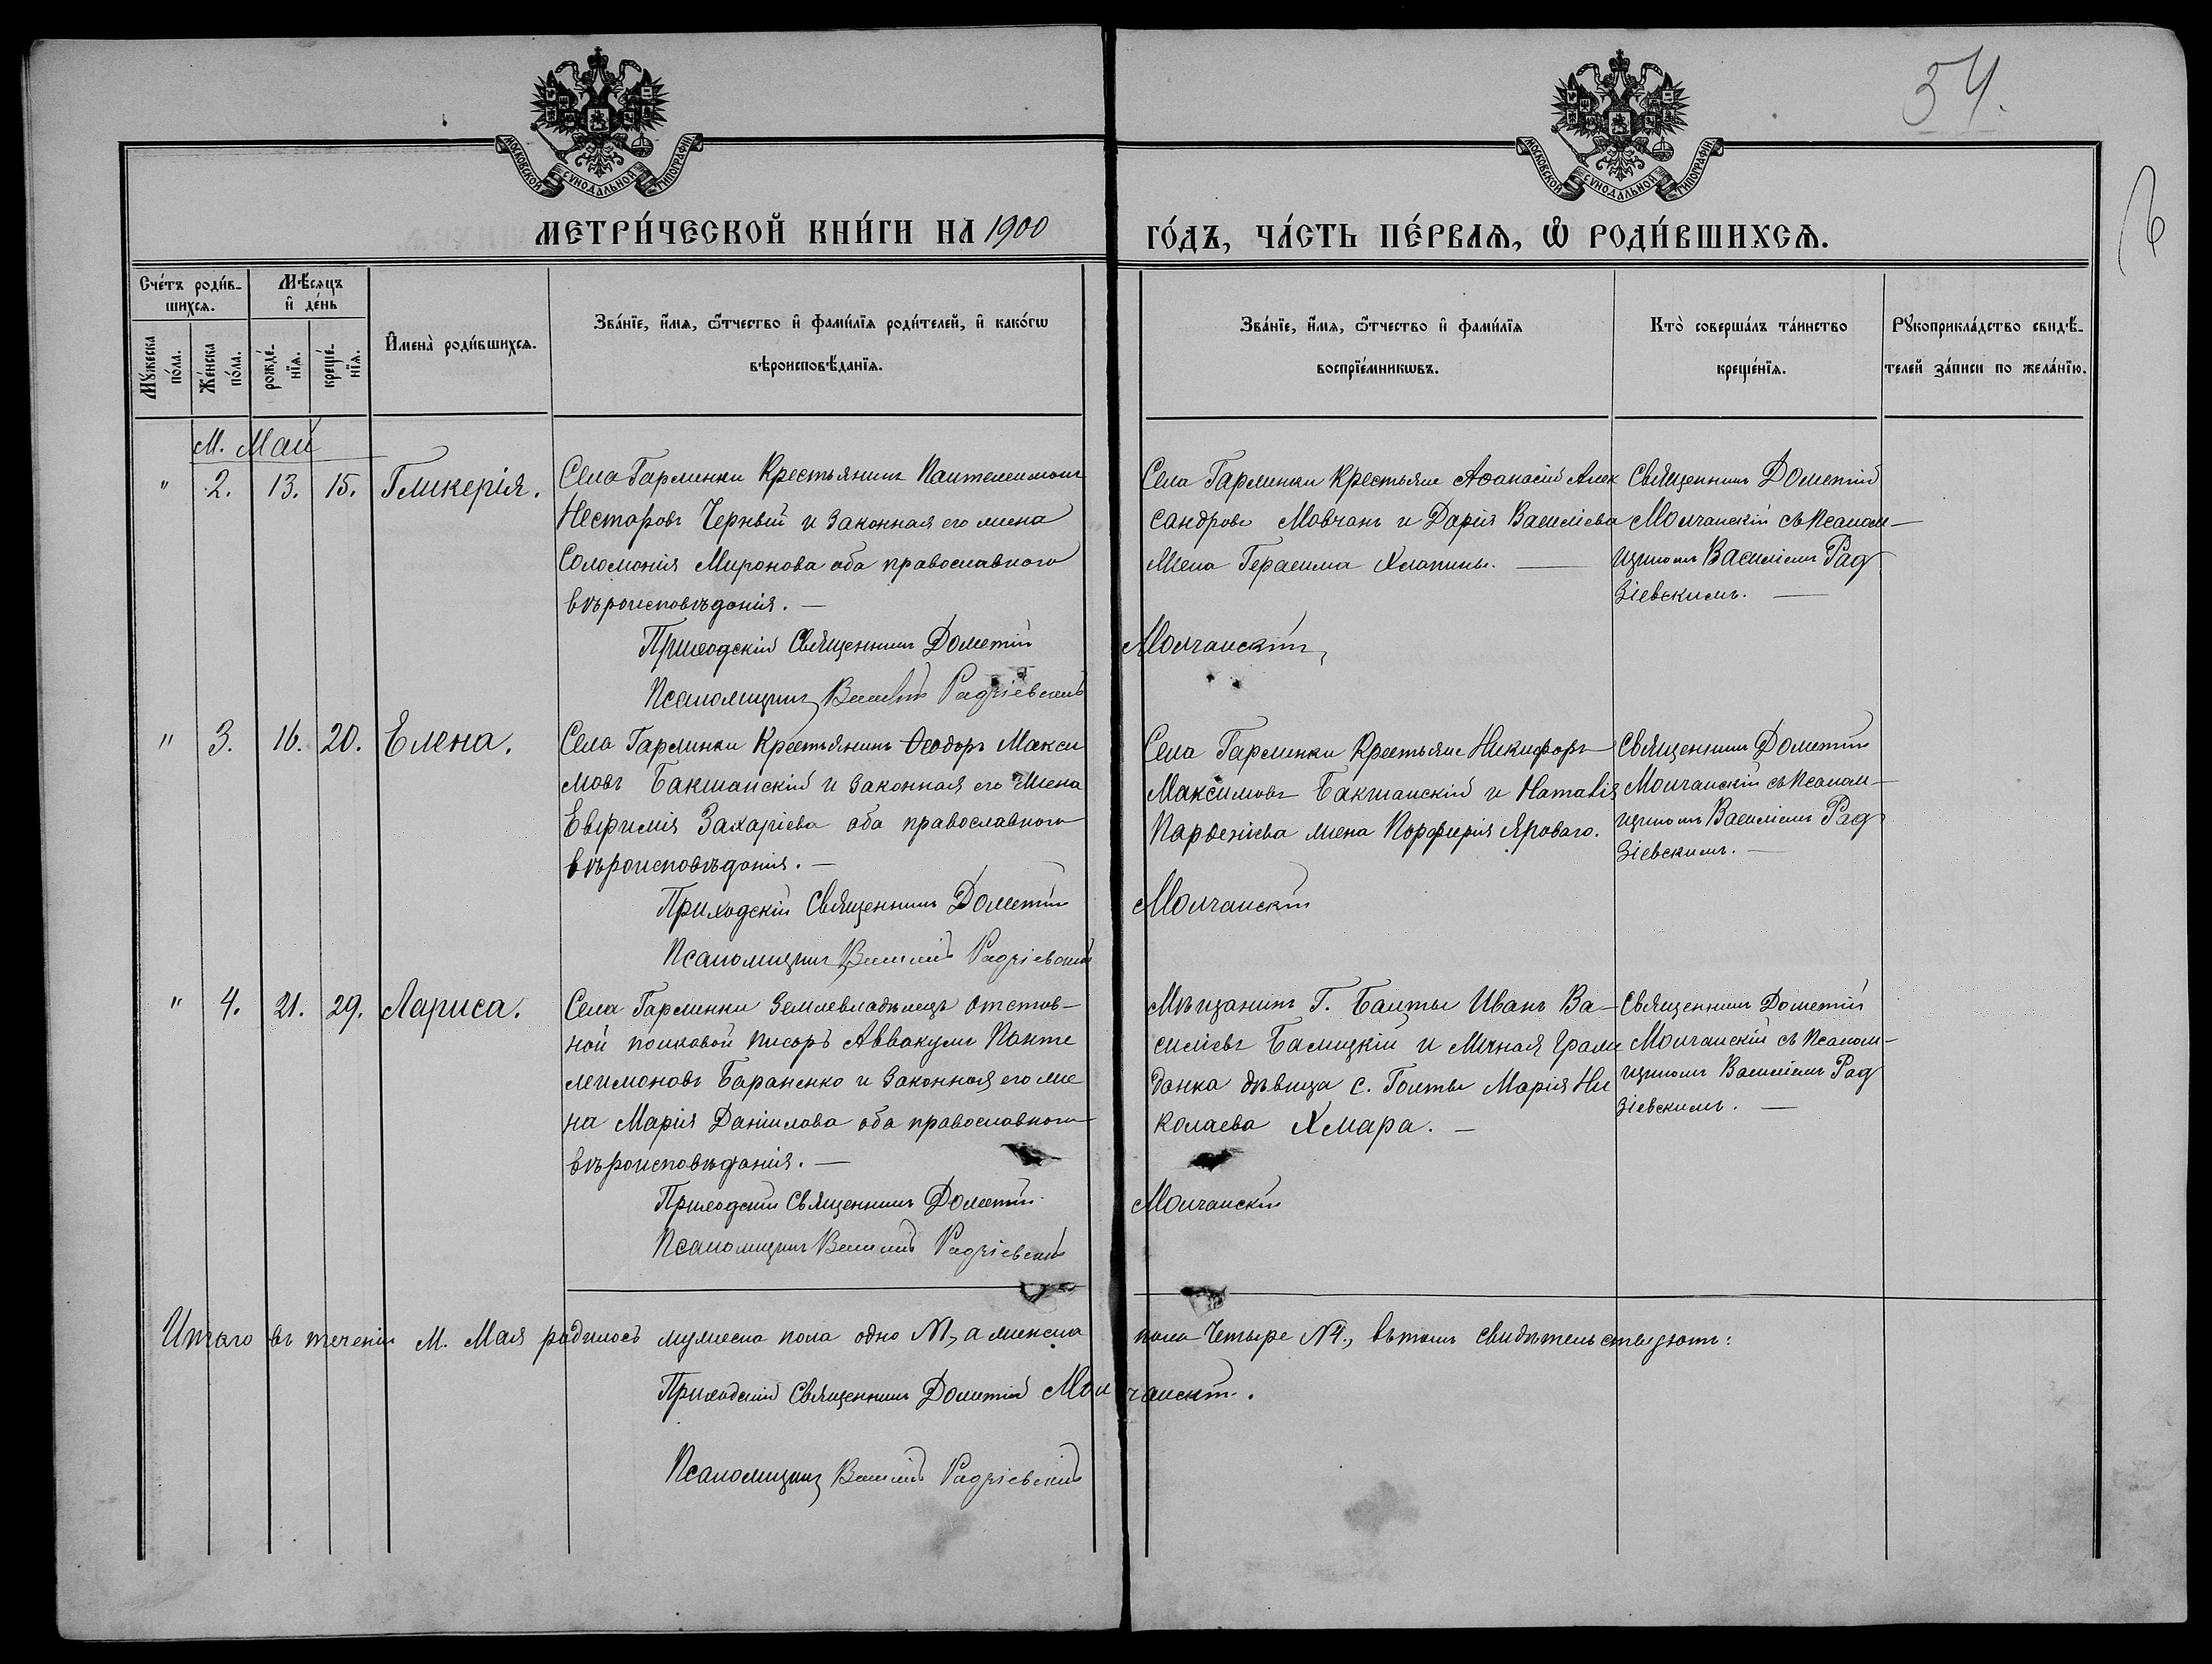 54.
6
МОСКОВСКОЙ СѴНОДАЛЬНОЙ ТИПОГРАФІИ
МОСКОВСКОЙ СѴНОДАЛЬНОЙ ТИПОГРАФІИ
МЕТРИ́ЧЕСКОЙ КНИ́ГИ НА 1900
ГО́ДЪ, ЧА́СТЬ ПЕ́РВАѦ, Ѡ҆ РОДИ́ВШИХСѦ.
Сче́тъ роди́в-
шихсѧ.
Мѣ́сѧцъ
и҆ де́нь
Мꙋ́жеска по́ла.
Же́нска по́ла.
рожде́-
нїѧ.
креще́-
нїѧ.
И҆мена̀ роди́вшихсѧ.
Зва́нїе, и҆́мѧ, ѻ҆́тчество и҆ фами́лїѧ роди́телей, и҆ како́гѡ
вѣроисповѣ́данїѧ.
Зва́нїе, и҆́мѧ, ѻ҆́тчество и҆ фами́лїѧ
воспрїе́мникѡвъ.
Кто̀ соверша́лъ та́инство
креще́нїѧ.
Рꙋкоприкла́дство свидѣ́-
телей за́писи по жела́нїю.
М. Май
" 2. 13. 15. Гликерія.
Села Гарлинки Крестьянинъ Пантелеимонъ
Несторовъ Черный и законная его жена
Соломонія Миронова оба православного
вѣроисповѣданія. —
Приходскій Священникъ Дометій
Псаломщикъ Василій Радзіевскій
Села Гарлинки Крестьяне Аѳанасій Алек
сандровъ Мовчанъ и Дарія Василіева
жена Герасима Хлапины. —
Молчанскій
Священникъ Дометій
Молчанскій съ Псалом-
щикомъ Василіемъ Рад
зіевскимъ. —
" 3. 16. 20. Елена.
Села Гарлинки Крестьянинъ Ѳеодоръ Макси
мовъ Бакшанскій и законная его жена
Евфимія Захаріева оба православного
вѣроисповѣданія. —
Приходскій Священникъ Дометій
Псаломщикъ Василій Радзіевскій
Села Гарлинки Крестьяне Никифоръ
Максимовъ Бакшанскій и Наталія
Парѳеніева жена Порфирія Яроваго.
Молчанскій
Священникъ Дометій
Молчанскій съ Псалом-
щикомъ Василіемъ Рад
зіевскимъ. —
" 4. 21. 29. Лариса.
Села Гарлинки Землевладѣлецъ Отстав-
ной полковой писарь Аввакумъ Панте
леимоновъ Бараненко и законная его же
на Марія Даніилова оба православного
вѣроисповѣданія. —
Приходскій Священникъ Дометій
Псаломщикъ Василій Радзіевскій
Мѣщанинъ Г. Балты Иванъ Ва-
силіевъ Балицкій и Личная Граж
данка дѣвица с. Голты Марія Ни
колаева Хмара. —
Молчанскій
Священникъ Дометій
Молчанскій съ Псалом-
щикомъ Василіемъ Рад
зіевскимъ. —
Итого въ теченіи М. Мая родилось мужеска пола одно №1, а женска пола Четыре №4., въ томъ свидѣтельствуютъ:
Приходскій Священникъ Дометій Молчанскій.
Псаломщикъ Василій Радзіевскій